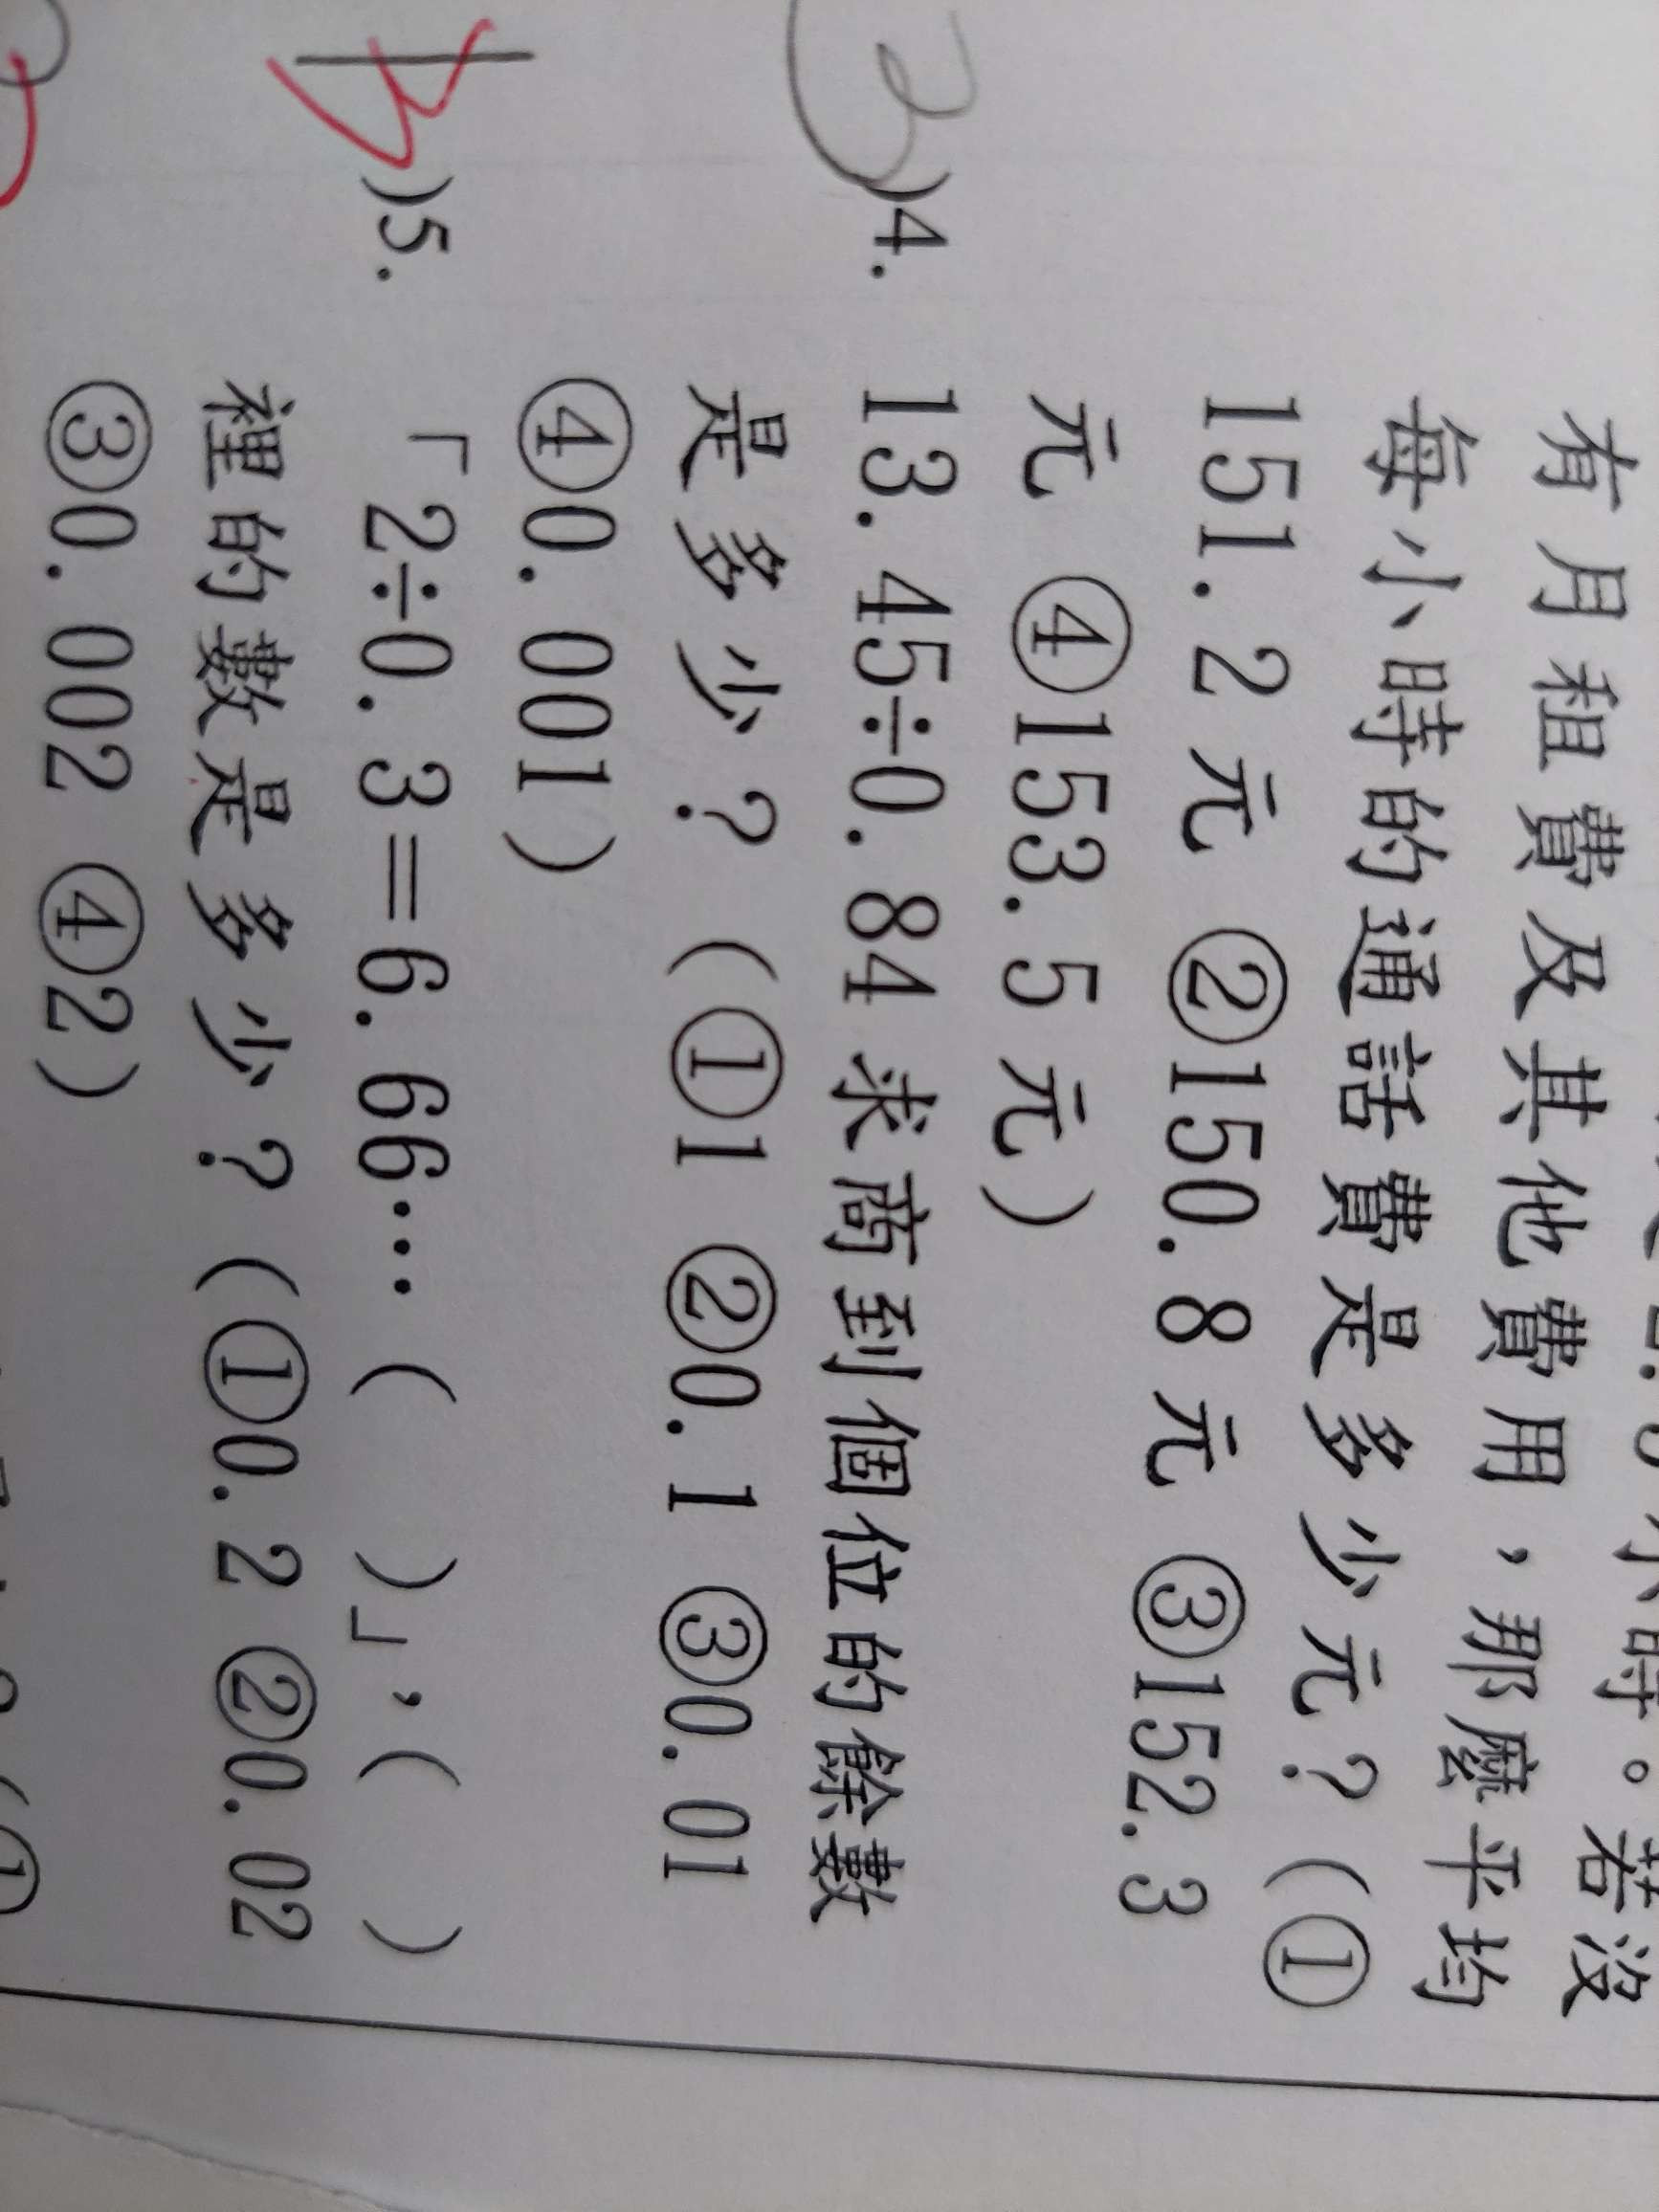 有月租費及其他費用，那麼平均
每小時的通話費是多少元？（①
151.2元 ②150.8元 ③152.3
元 ④153.5元）
)4. 13.45÷0.84求商到個位的餘數
是多少？（①1 ②0.1 ③0.01
④0.001）
)5. 「2÷0.3=6.66…（ ）」，（ ）
裡的數是多少？（①0.2 ②0.02
③0.002 ④2）